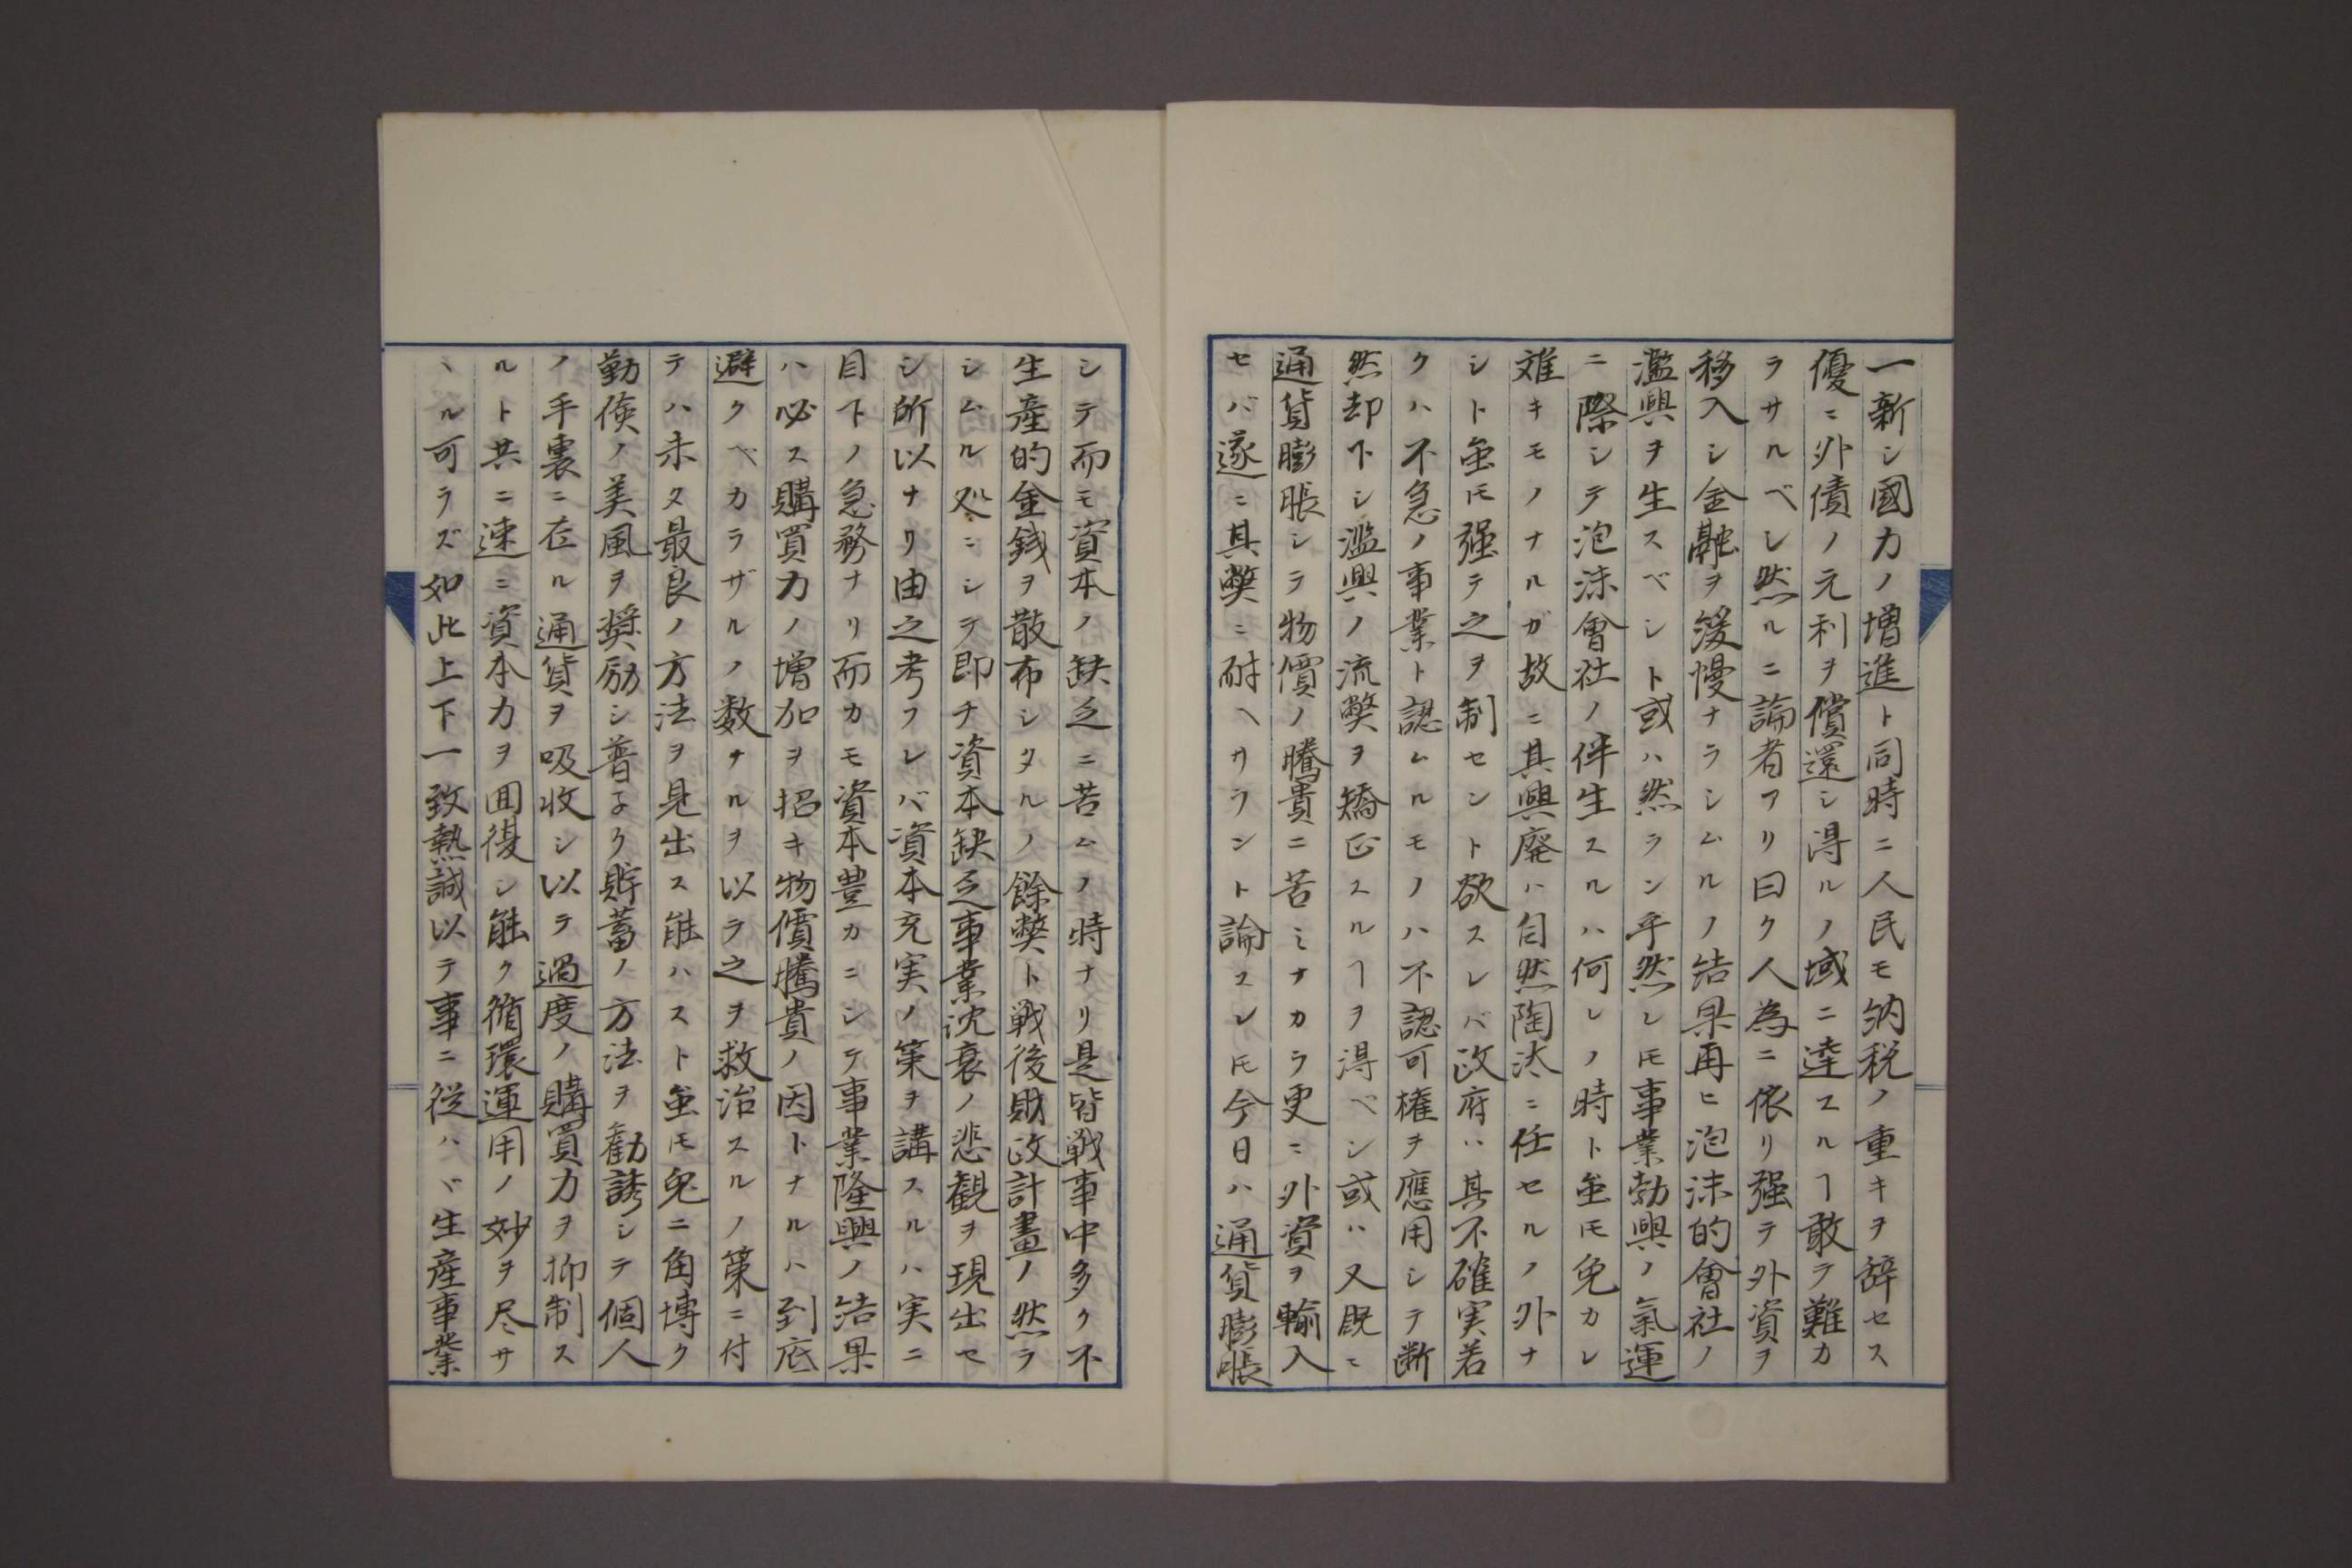 一新シ國力ノ増進ト同時ニ人民モ納税ノ重キヲ辞セス
優ニ外債ノ元利ヲ償還シ得ルノ域ニ達スルヿ敢テ難カ
ラサルベシ然ルニ論者アリ曰ク人為ニ依リ强テ外資ヲ
移入シ金融ヲ緩慢ナラシムルノ結果再ヒ泡沫的會社ノ
濫興ヲ生スベシト或ハ然ラン乎然レ𪜈事業勃興ノ氣運
ニ際シテ泡沫會社ノ伴生スルハ何レノ時ト虽𪜈免カレ
難キモノナルガ故ニ其興廃ハ自然陶汰ニ任セルノ外ナ
シト虽𪜈强テ之ヲ制セント欲スレバ政府ハ其不確実若
クハ不急ノ事業ト認ムルモノハ不認可権ヲ應用シテ断
然却下シ濫興ノ流弊ヲ矯正スルヿヲ得ベシ或ハ又既ニ
通貨膨脹シテ物價ノ騰貴ニ苦ミナカラ更ニ外資ヲ輸入
セバ遂ニ其弊ニ耐ヘサラント論スレ𪜈今日ハ通貨膨脹
シテ而モ資本ノ缺乏ニ苦ムノ時ナリ是皆戦事中多ク不
生産的金銭ヲ散布シタルノ餘弊ト戦後財政計畫ノ然ラ
シムル処ニシテ即チ資本缺乏事業沈衰ノ悲観ヲ現出セ
シ所以ナリ由之考フレバ資本充実ノ策ヲ講スルハ実ニ
目下ノ急務ナリ而カモ資本豊カニシテ事業隆興ノ結果
ハ必ス購買力ノ増加ヲ招キ物價騰貴ノ因トナルハ到底
避クベカラザルノ数ナルヲ以テ之ヲ救治スルノ策ニ付
テハ未タ最良ノ方法ヲ見出ス能ハスト虽𪜈兎ニ角博ク
勤倹ノ美風ヲ奨励シ普子ク貯蓄ノ方法ヲ勧誘シテ個人
ノ手裏ニ在ル通貨ヲ吸收シ以テ過度ノ購買力ヲ抑制ス
ルト共ニ速ニ資本力ヲ囬復シ能ク循環運用ノ妙ヲ尽サ
ヽル可ラズ如此上下一致熱誠以テ事ニ從ハヾ生産事業